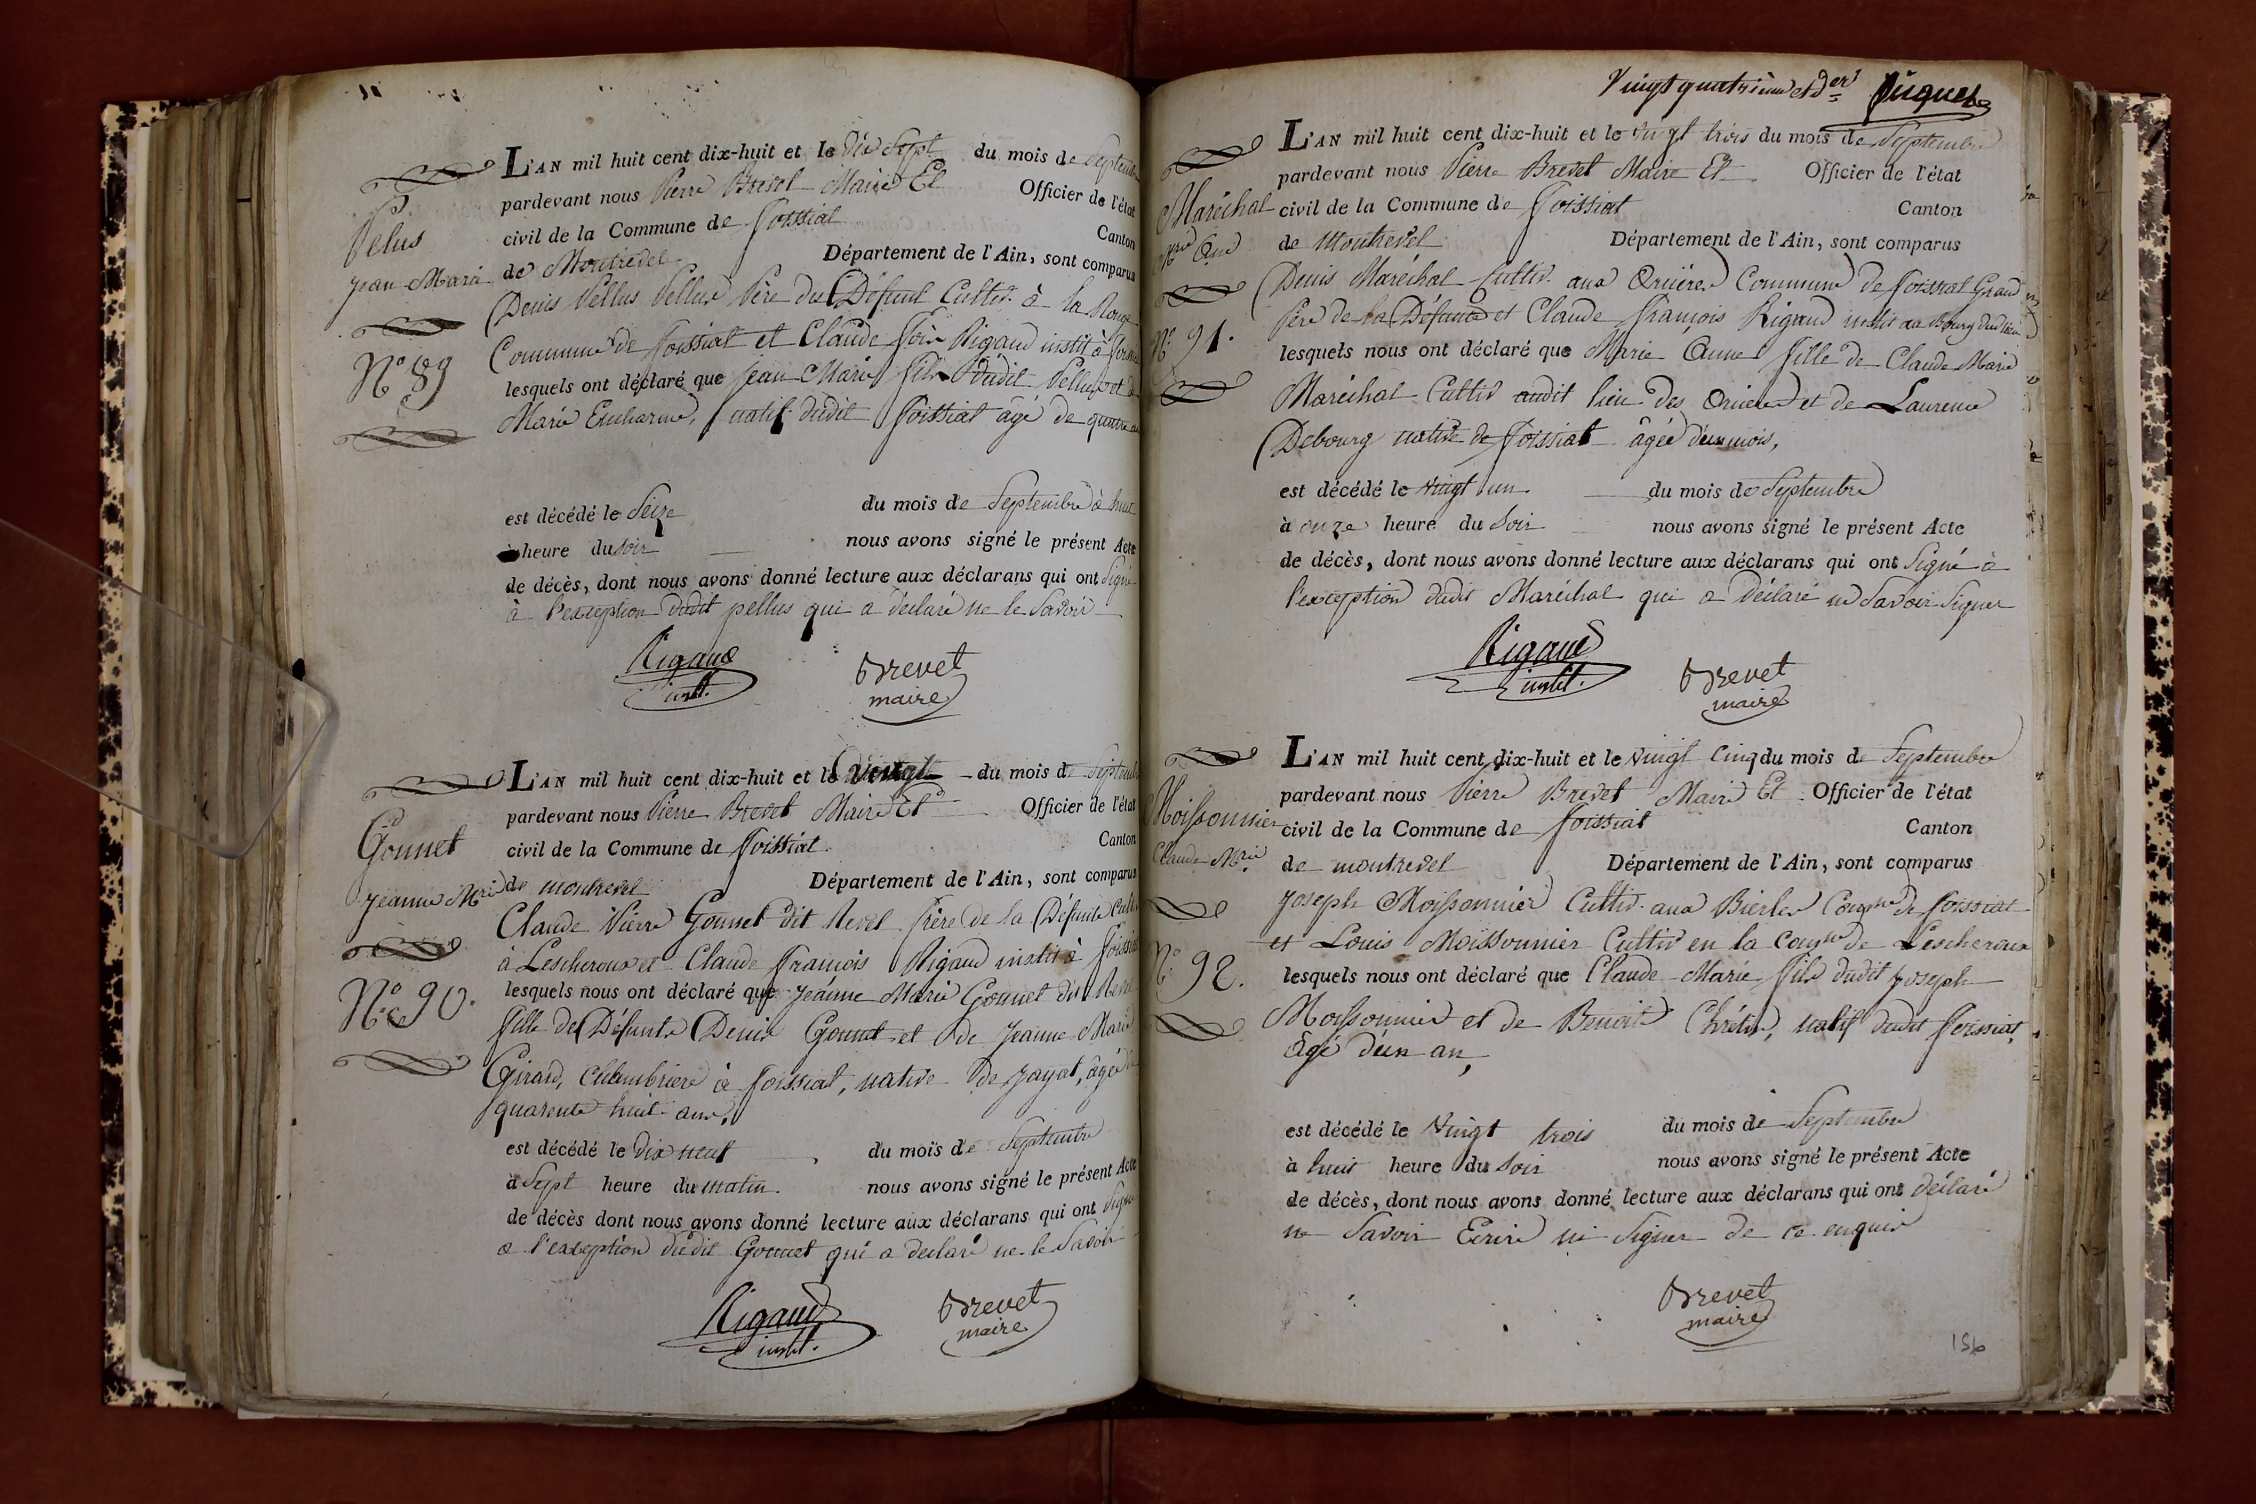 Pelus
Jean Marie
N.º 89
L'AN mil huit cent dix-huit et le dix Sept du mois de Septembre
pardevant nous Pierre Brevet Maire Et Officier de l'état
civil de la Commune de Foissiat Canton
de Montrevel Département de l'Ain, sont comparus
Denis Pellus Pellus Père du Défunt Cultiv. à la
Commune de Foissiat et Claude Fçois Rigaud instit. à
lesquels ont déclaré que Jean Marie fils dudit Pellus et de
Marie natif dudit Foissiat âgé de quatre
est décédé le Seize du mois de Septembre à huit
heure du soir nous avons signé le présent Acte
de décès, dont nous avons donné lecture aux déclarans qui ont Signé
à l'exception dudit pellus qui a déclaré ne le Savoir
Rigaud
instit.
Brevet
maire
Gonnet
Jeanne Mrie
N.º 90.
L'AN mil huit cent dix-huit et le vingt du mois de Septembre
pardevant nous Pierre Brevet Maire Et Officier de l'état
civil de la Commune de Foissiat. Canton
de montrevel Département de l'Ain, sont comparus
Claude Pierre Gonnet dit Revel frère de la Défunte Cultiv
à Lescheroux et Claude François Rigaud instit à Foissiat
lesquels nous ont déclaré que Jeanne Marie Gonnet dit Revel
fille de Défunts Denis Gonnet et de Jeanne Marie
Girard, chambrière à Foissiat, native de Jayat, âgée de
quarente huit ans,
est décédé le dix neuf du mois de Septembre
à Sept heure du matin. nous avons signé le présent Acte
de décès dont nous avons donné lecture aux déclarans qui ont Signé
a l'exception dudit Gonnet qui a declaré ne le Savoir
Rigaud
instit.
Brevet
maire
Vingt quatrième et der
Maréchal
Mrie Ane
N.º 91.
L'AN mil huit cent dix-huit et le vingt trois du mois de Septembre
pardevant nous Pierre Brevet Maire Et Officier de l'état
civil de la Commune de Foissiat Canton
de Montrevel Département de l'Ain, sont comparus
Denis Maréchal Cultiv. aux Commune de Foissiat Grand
Père de la Défunte et Claude François Rigaud instit au Bourg dud lieu
lesquels nous ont déclaré que Marie Anne fille de Claude Marie
Maréchal Cultiv audit lieu des et de Laurence
Debourg native de Foissiat âgée d'un mois,
est décédé le vingt un du mois de Septembre
à onze heure du Soir nous avons signé le présent Acte
de décès, dont nous avons donné lecture aux déclarans qui ont Signé à
l'exception dudit Maréchal qui a Déclaré ne Savoir Signer
Rigaud
instit.
Brevet
maire
Moissonnier
Claude Mrie
N.º 92.
L'AN mil huit cent dix-huit et le vingt cinq du mois de Septembre
pardevant nous Pierre Brevet Maire Et Officier de l'état
civil de la Commune de Foissiat Canton
de montrevel Département de l'Ain, sont comparus
Joseph Moissonnier Cultiv. aux Comne de Foissiat
et Louis Moissonnier Cultiv en la Comne de Lescheroux
lesquels nous ont déclaré que Claude Marie fils dudit Joseph
Moissonnier et de Benoite Chrétin, natif dudit Foissiat,
âgé d'un an,
est décédé le vingt trois du mois de Septembre
à huit heure du Soir nous avons signé le présent Acte
de décès, dont nous avons donné lecture aux déclarans qui ont déclaré
ne Savoir Ecrire ni Signer de ce enquis
Brevet
maire
156